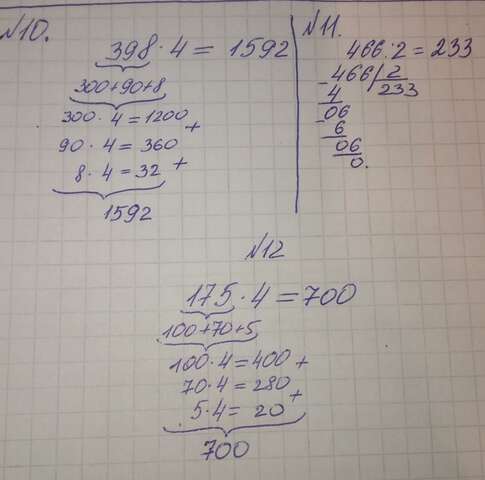 №10.
398 · 4 = 1592
300+90+8
300 · 4 = 1200 +
90 · 4 = 360
8 · 4 = 32 +
1592
№11.
466 : 2 = 233
- 466 | 2
4 233
- 06
6
06
0.
№12
175 · 4 = 700
100+70+5
100 · 4 = 400 +
70 · 4 = 280
5 · 4 = 20 +
700